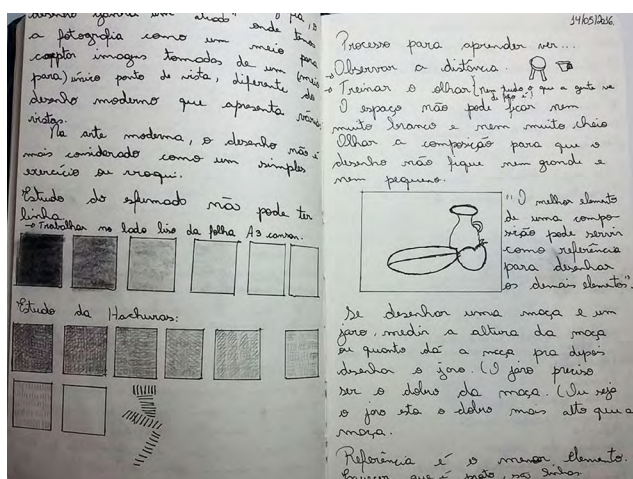 desenho ganhou um aliado" onde
a fotografia como um meio para
captar imagens tomadas de um (meio
para) único ponto de vista, diferente do
desenho moderno que apresenta vários
vistas.
Na arte moderna, o desenho não é
mais considerado como um simples
exercício ou croqui.
Estudo do esfumado não pode ter
linha.
→ Trabalhar no lado liso da folha A3 canson.
Estudo da Hachuras:
14/03/2016.
Processo para aprender ver...
→ Observar a distância.
→ Treinar o olhar (nem tudo o que a gente ve
de fato é)
O espaço não pode ficar nem
muito branco e nem muito cheio
Olhar a composição para que o
desenho não fique nem grande e
nem pequeno.
"O melhor elemento
de uma compo-
sição pode servir
como referência
para desenhar
os demais elementos".
Se desenhar uma maça e um
jaro, medir a altura da maça
ou quanto dá a maça pra depois
desenhar o jaro. (O jaro precisa
ser o dobro da maça. (Ou seja
o jaro esta o dobro mais alto que a
maça.
Referência é o menor elemento.
Esquecer que é prato, são linhas